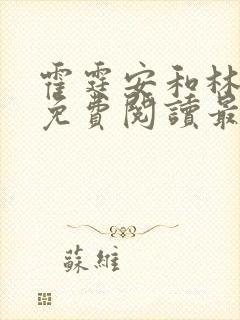 霍霆安和林
免費閱讀最
蘇維